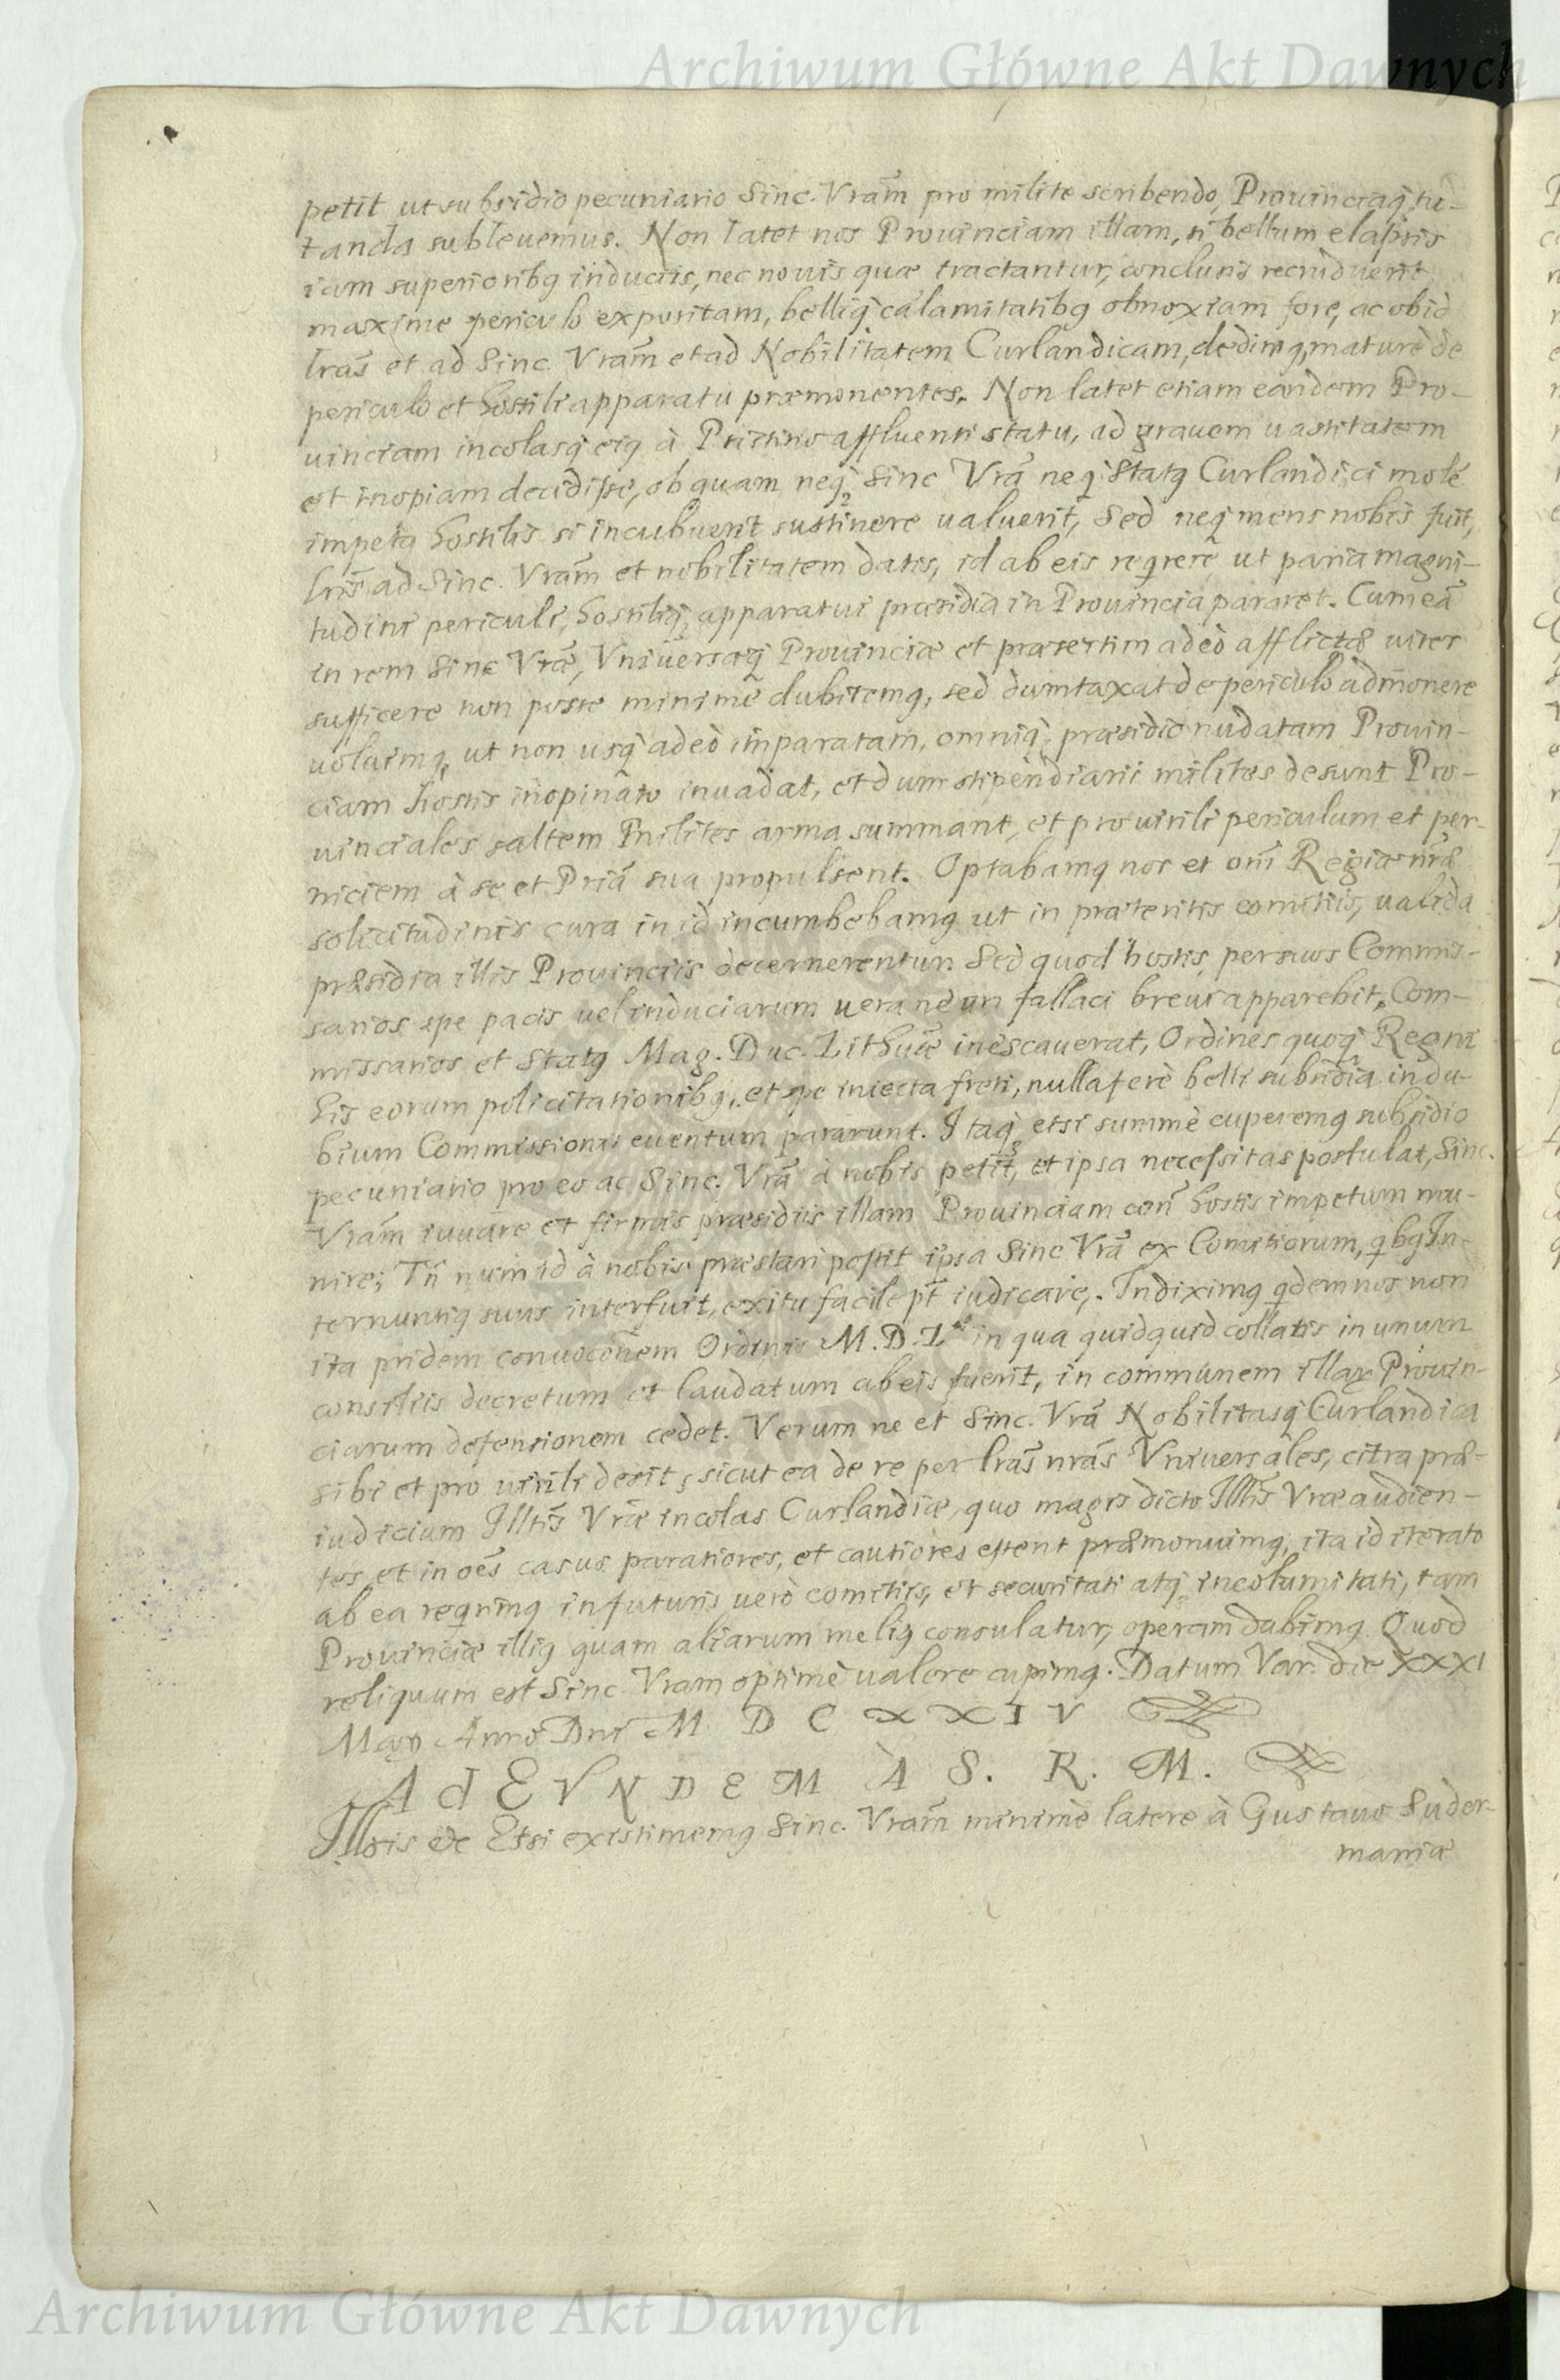 Archiwum Główne Akt Dawnych
petit ut subsidio pecuniario Sinc. Vrãm pro milite scribendo, Prouinciaq̃ tu-
tanda subleuemus. Non latet nos Prouinciam illam, si bellum elapsis
iam superioribꝯ induciis, nec nouis quæ tractantur, conclusis recruduerit
maxime periculo expositam, belliq̃ calamitatibꝯ obnoxiam fore, ac ob id
lrãs et ad Sinc. Vrãm et ad Nobilitatem Curlandicam, dedimꝯ, maturè de
periculo et hostili apparatu præmonentes. Non latet etiam eandem Pro-
uinciam incolasq̃ eiꝯ à Pristino affluenti statu, ad grauem uastitatem
et inopiam decidisse, ob quam neq̃ Sinc Vrã neq̃ Statꝯ Curlandici molẽ
impetꝯ hostilis si incubuerit sustinere ualuerit, Sed neq̃ mens nobis fuit,
lrĩs ad Sinc. Vrãm et nobilitatem datis, id ab eis reqrere ut paria magni-
tudini periculi, hostiliq̃ apparatui præsidia in Prouincia pararet. Cum eã
in rem Sinc Vræ̃, Vniuersæq̃ Prouinciæ et præsertim adeò afflictæ uires
sufficere non posse minimè dubitemꝯ, sed dumtaxat de periculo admonere
uoluimꝯ, ut non usq̃ adeò imparatam, omniq̃ præsidio nudatam Prouin-
ciam hostis inopinato inuadat, et dum stipendiarii milites desunt Pro-
uinciales saltem Milites arma summant, et pro uirili periculum et per-
niciem à se et Priã sua propulsent. Optabamꝯ nos et om̃i Regiæ nr̃æ
solicitudinis cura in id incumbebamꝯ ut in præteritis comitiis, ualida
præsidia illis Prouinciis decernerentur. Sed quod hostis, per suos Commis-
sarios spe pacis uel induciarum uera ne an fallaci breui apparebit, Com-
missarios et Statꝯ Mag. Duc. Lithuæ̃ inescauerat, Ordines quoq̃ Regni
his eorum policitationibꝯ, et spe iniecta freti, nulla ferè belli subsidia in du-
bium Commissionis euentum pararunt. Itaq̃ etsi summè cuperemꝯ subsidio
pecuniario pro eo ac Sinc. Vrã à nobis petit, et ipsa necessitas postulat, Sinc.
Vrãm iuuare et firmis præsidiis illam Prouinciam con̄ hostis impetum mu-
nire; Tñ num id à nobis præstari possit ipsa Sinc Vrã ex Comitiorum, qbꝯ In-
ternuntiꝯ suus interfuit, exitu facile pt̃ iudicare. Indiximꝯ qdem nos non
ita pridem conuocõnem Ordinis M. D. L. in qua quidquid collatis in unum
consiliis decretum et laudatum ab eis fuerit, in communem illaꝝ Prouin-
ciarum defensionem cedet. Verum ne et Sinc. Vrã Nobilitasq̃ Curlandica
sibi et pro uirili desit, sicut ea de re per lrãs nrãs Vniuersales, citra præ-
iudicium Illtĩs Vræ̃ incolas Curlandiæ, quo magis dicto Illtĩs Vræ audien-
tes et in oẽs casus paratiores, et cautiores essent præmonuimꝯ, ita id iterato
ab ea reqrimꝯ in futuris uerò comitiis, et securitati atq̃ incolumitati, tam
Prouinciæ illiꝯ quam aliarum meliꝯ consulatur, operam dabimꝯ. Quod
reliquum est Sinc. Vram optimè ualere cupimꝯ. Datum Var. die XXXI
May Anno Dni M D C XXIV
Ad EVNDEM À S. R. M.
Illtris &c Etsi existimemꝯ Sinc. Vrãm minimè latere à Gustauo Suder-
maniæ
Archiwum Główne Akt Dawnych